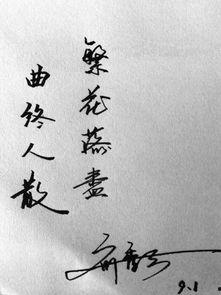 繁花落尽
曲终人散
9.1